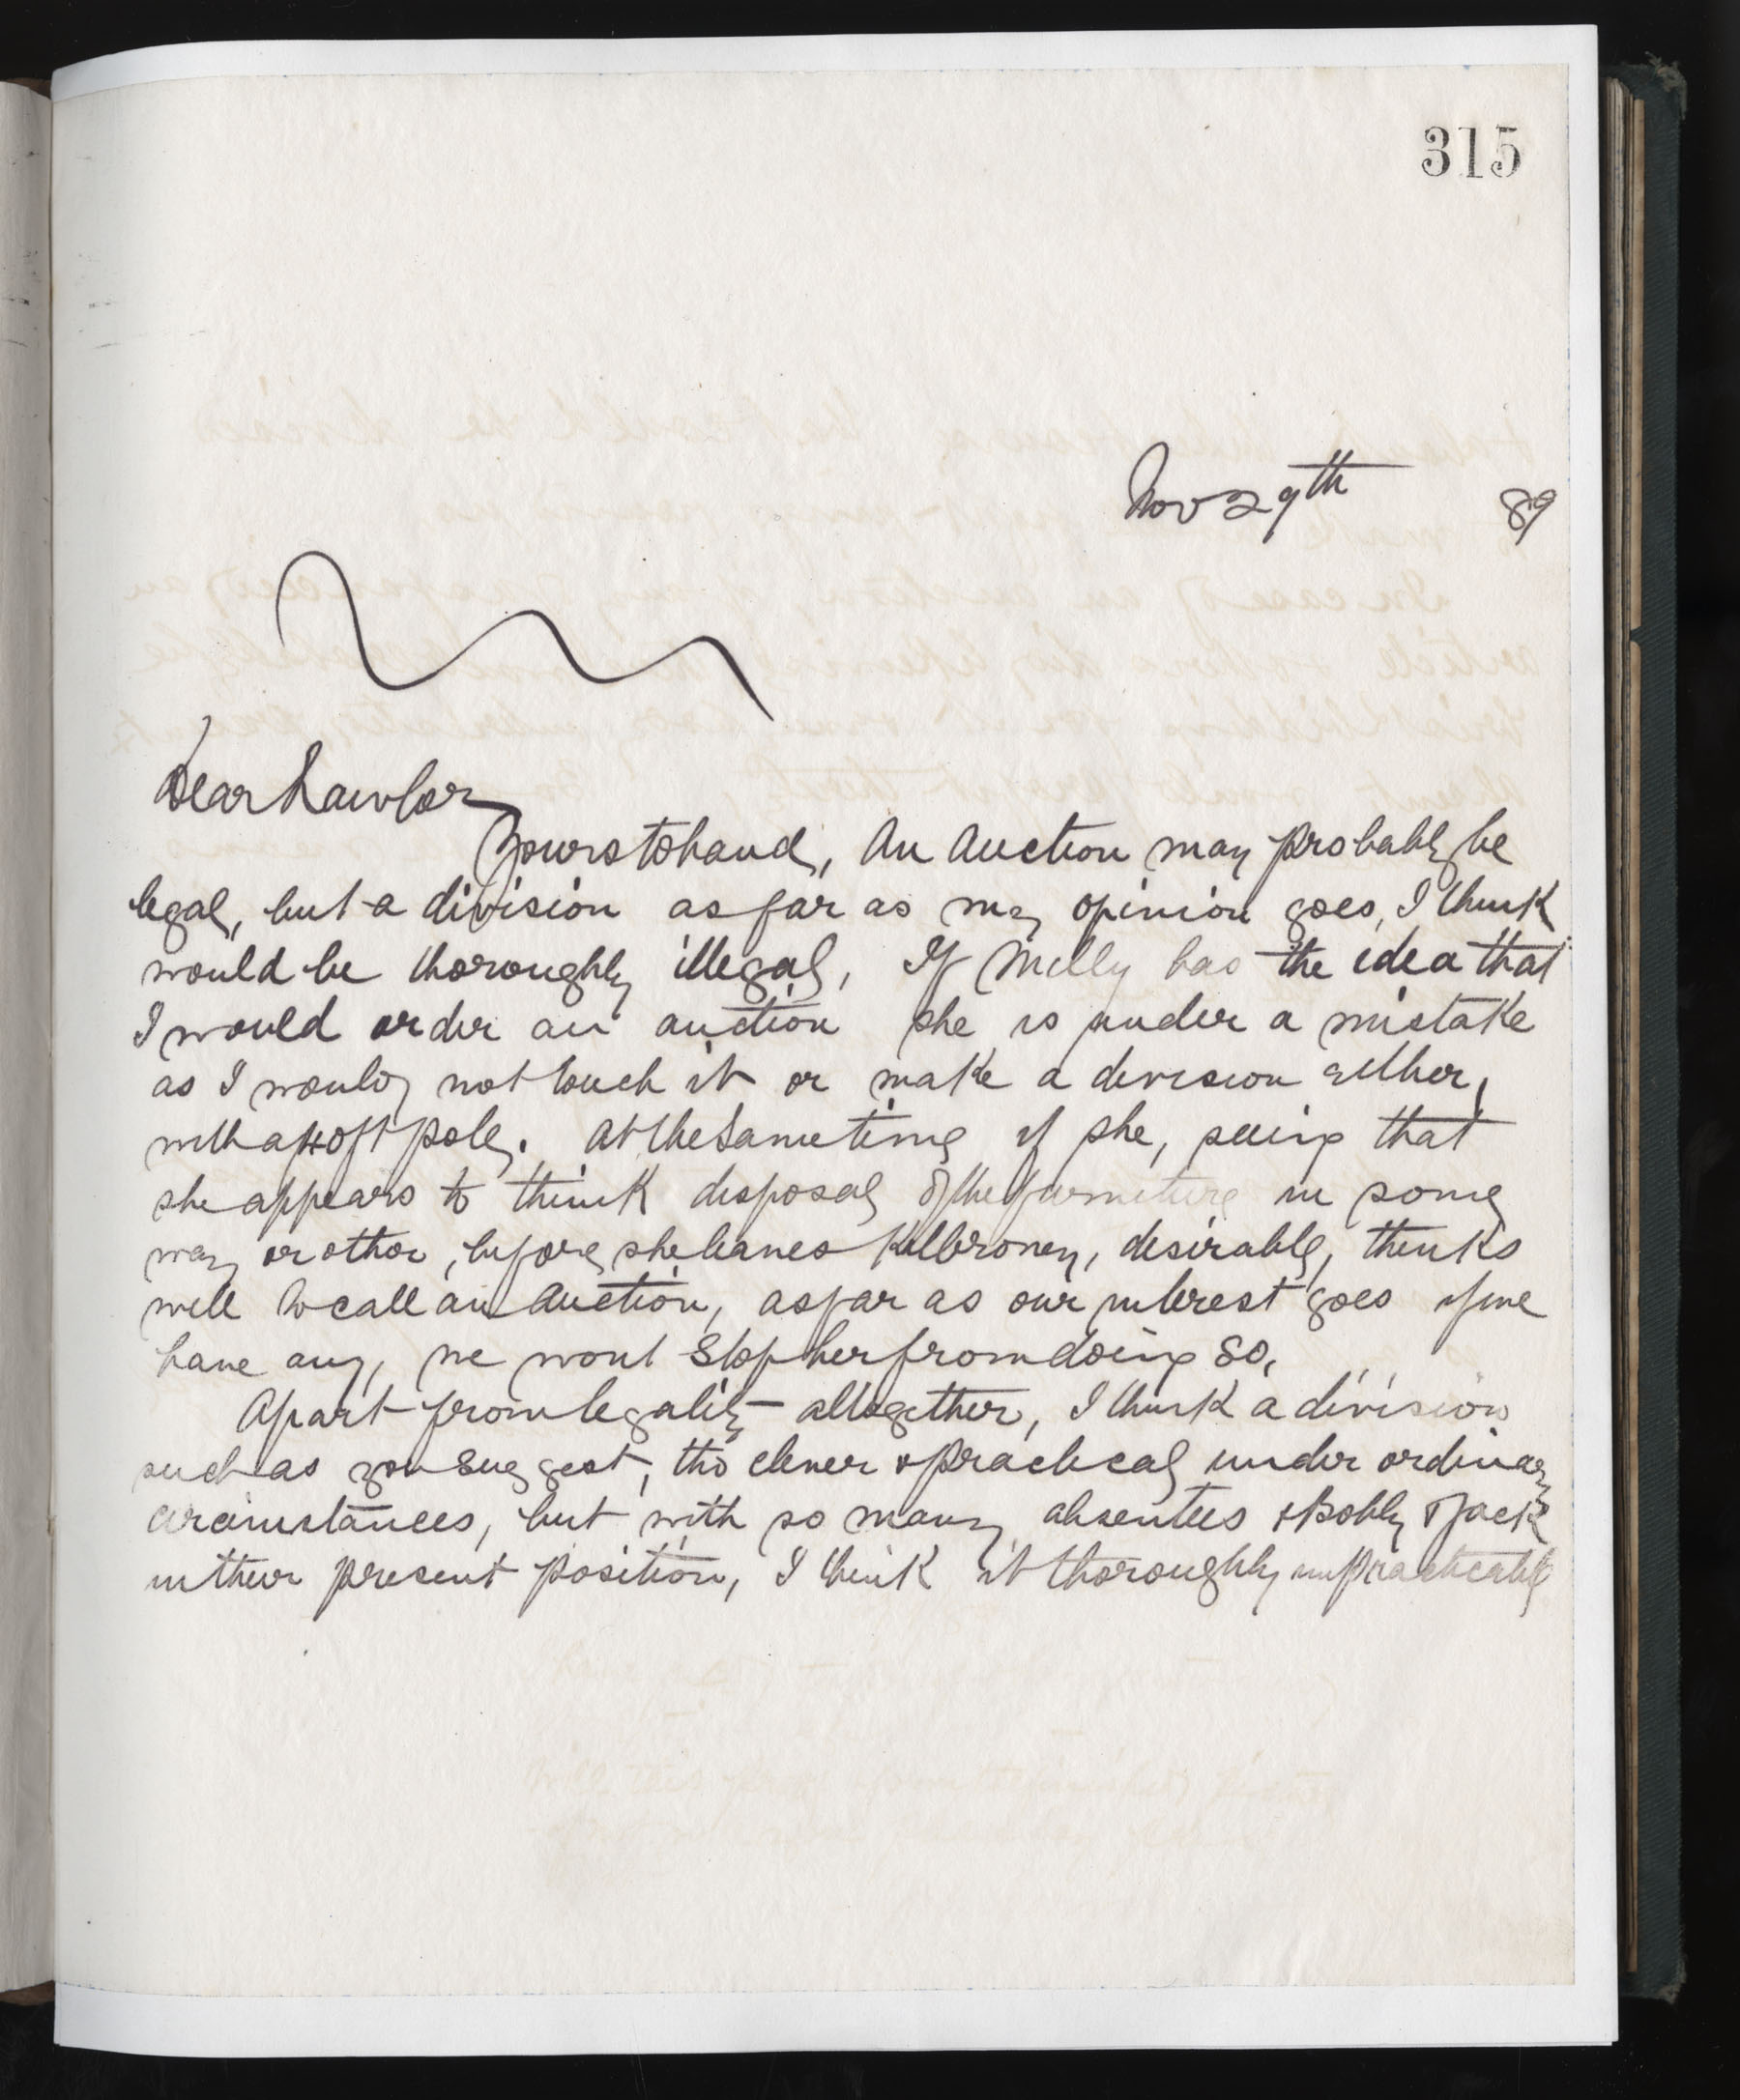 315
Nov 29th 89
Dear Lawlor
Yours to hand, An Auction may probably be
legal, but a division as far as my opinion goes, I think
would be thoroughly illegal, If Milly has the idea that
I would order an auction she is under a mistake
as I would not touch it or make a division either,
with a 40ft pole. At the same time if she, seeing that
she appears to think disposal of the furniture in some
way or other, before she leaves Kilbroney, desirable, thinks
well to call an Auction, as far as our interest goes if we
have any, we wont stop her from doing so,
Apart from legality altogether, I think a division
such as you suggest, tho clever & practical under ordinary
circumstances, but with so many absentees & Bobby & Jack
in their present position, I think it thoroughly unpracticable